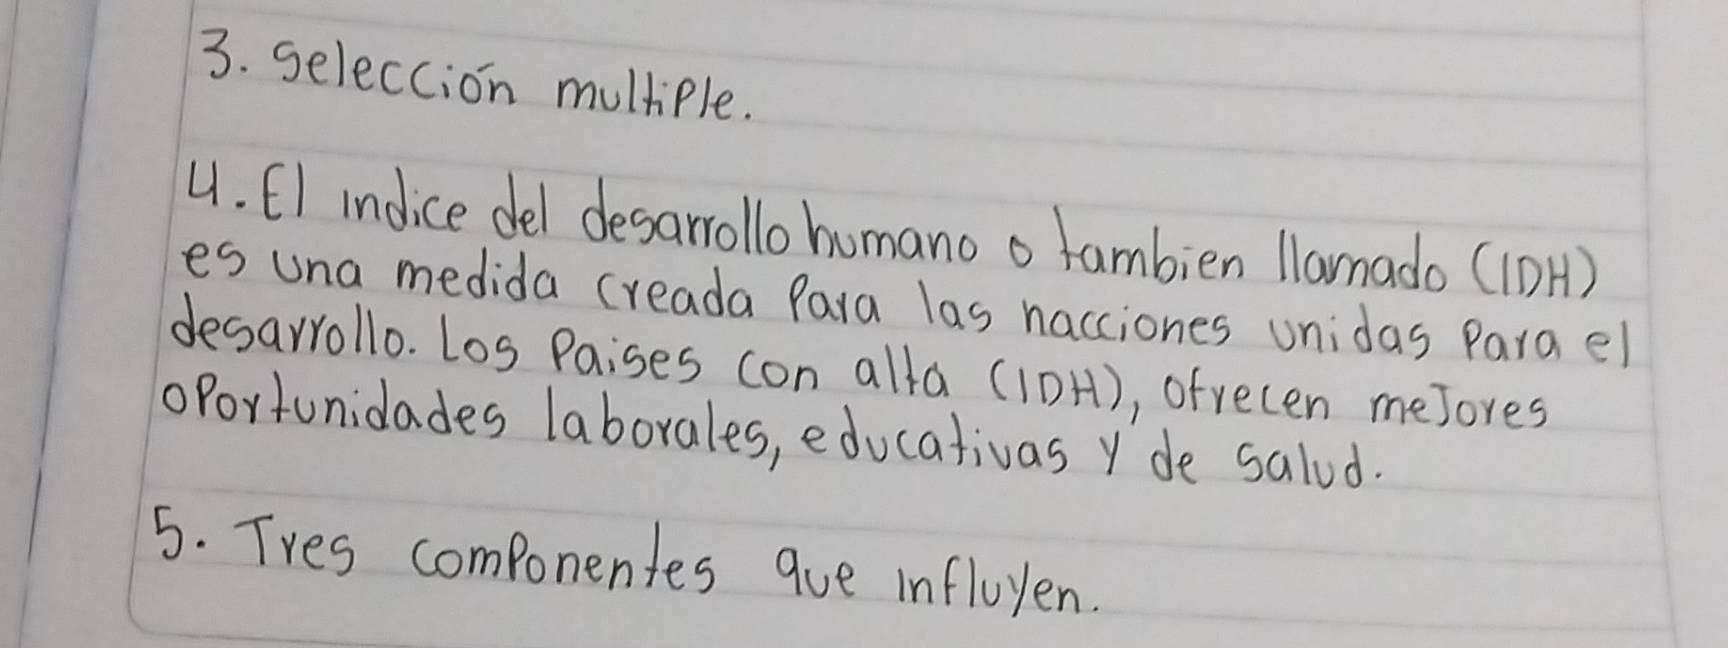 3. Selección multiple.
4. El indice del desarrollo humano o tambien llamado (IDH)
es una medida creada Para las nacciones unidas Para el
desarrollo. Los Paises con alta (IDH), ofrecen meJores
oPortunidades laborales, educativas y de salud.
5. Tres comPonentes que influyen.